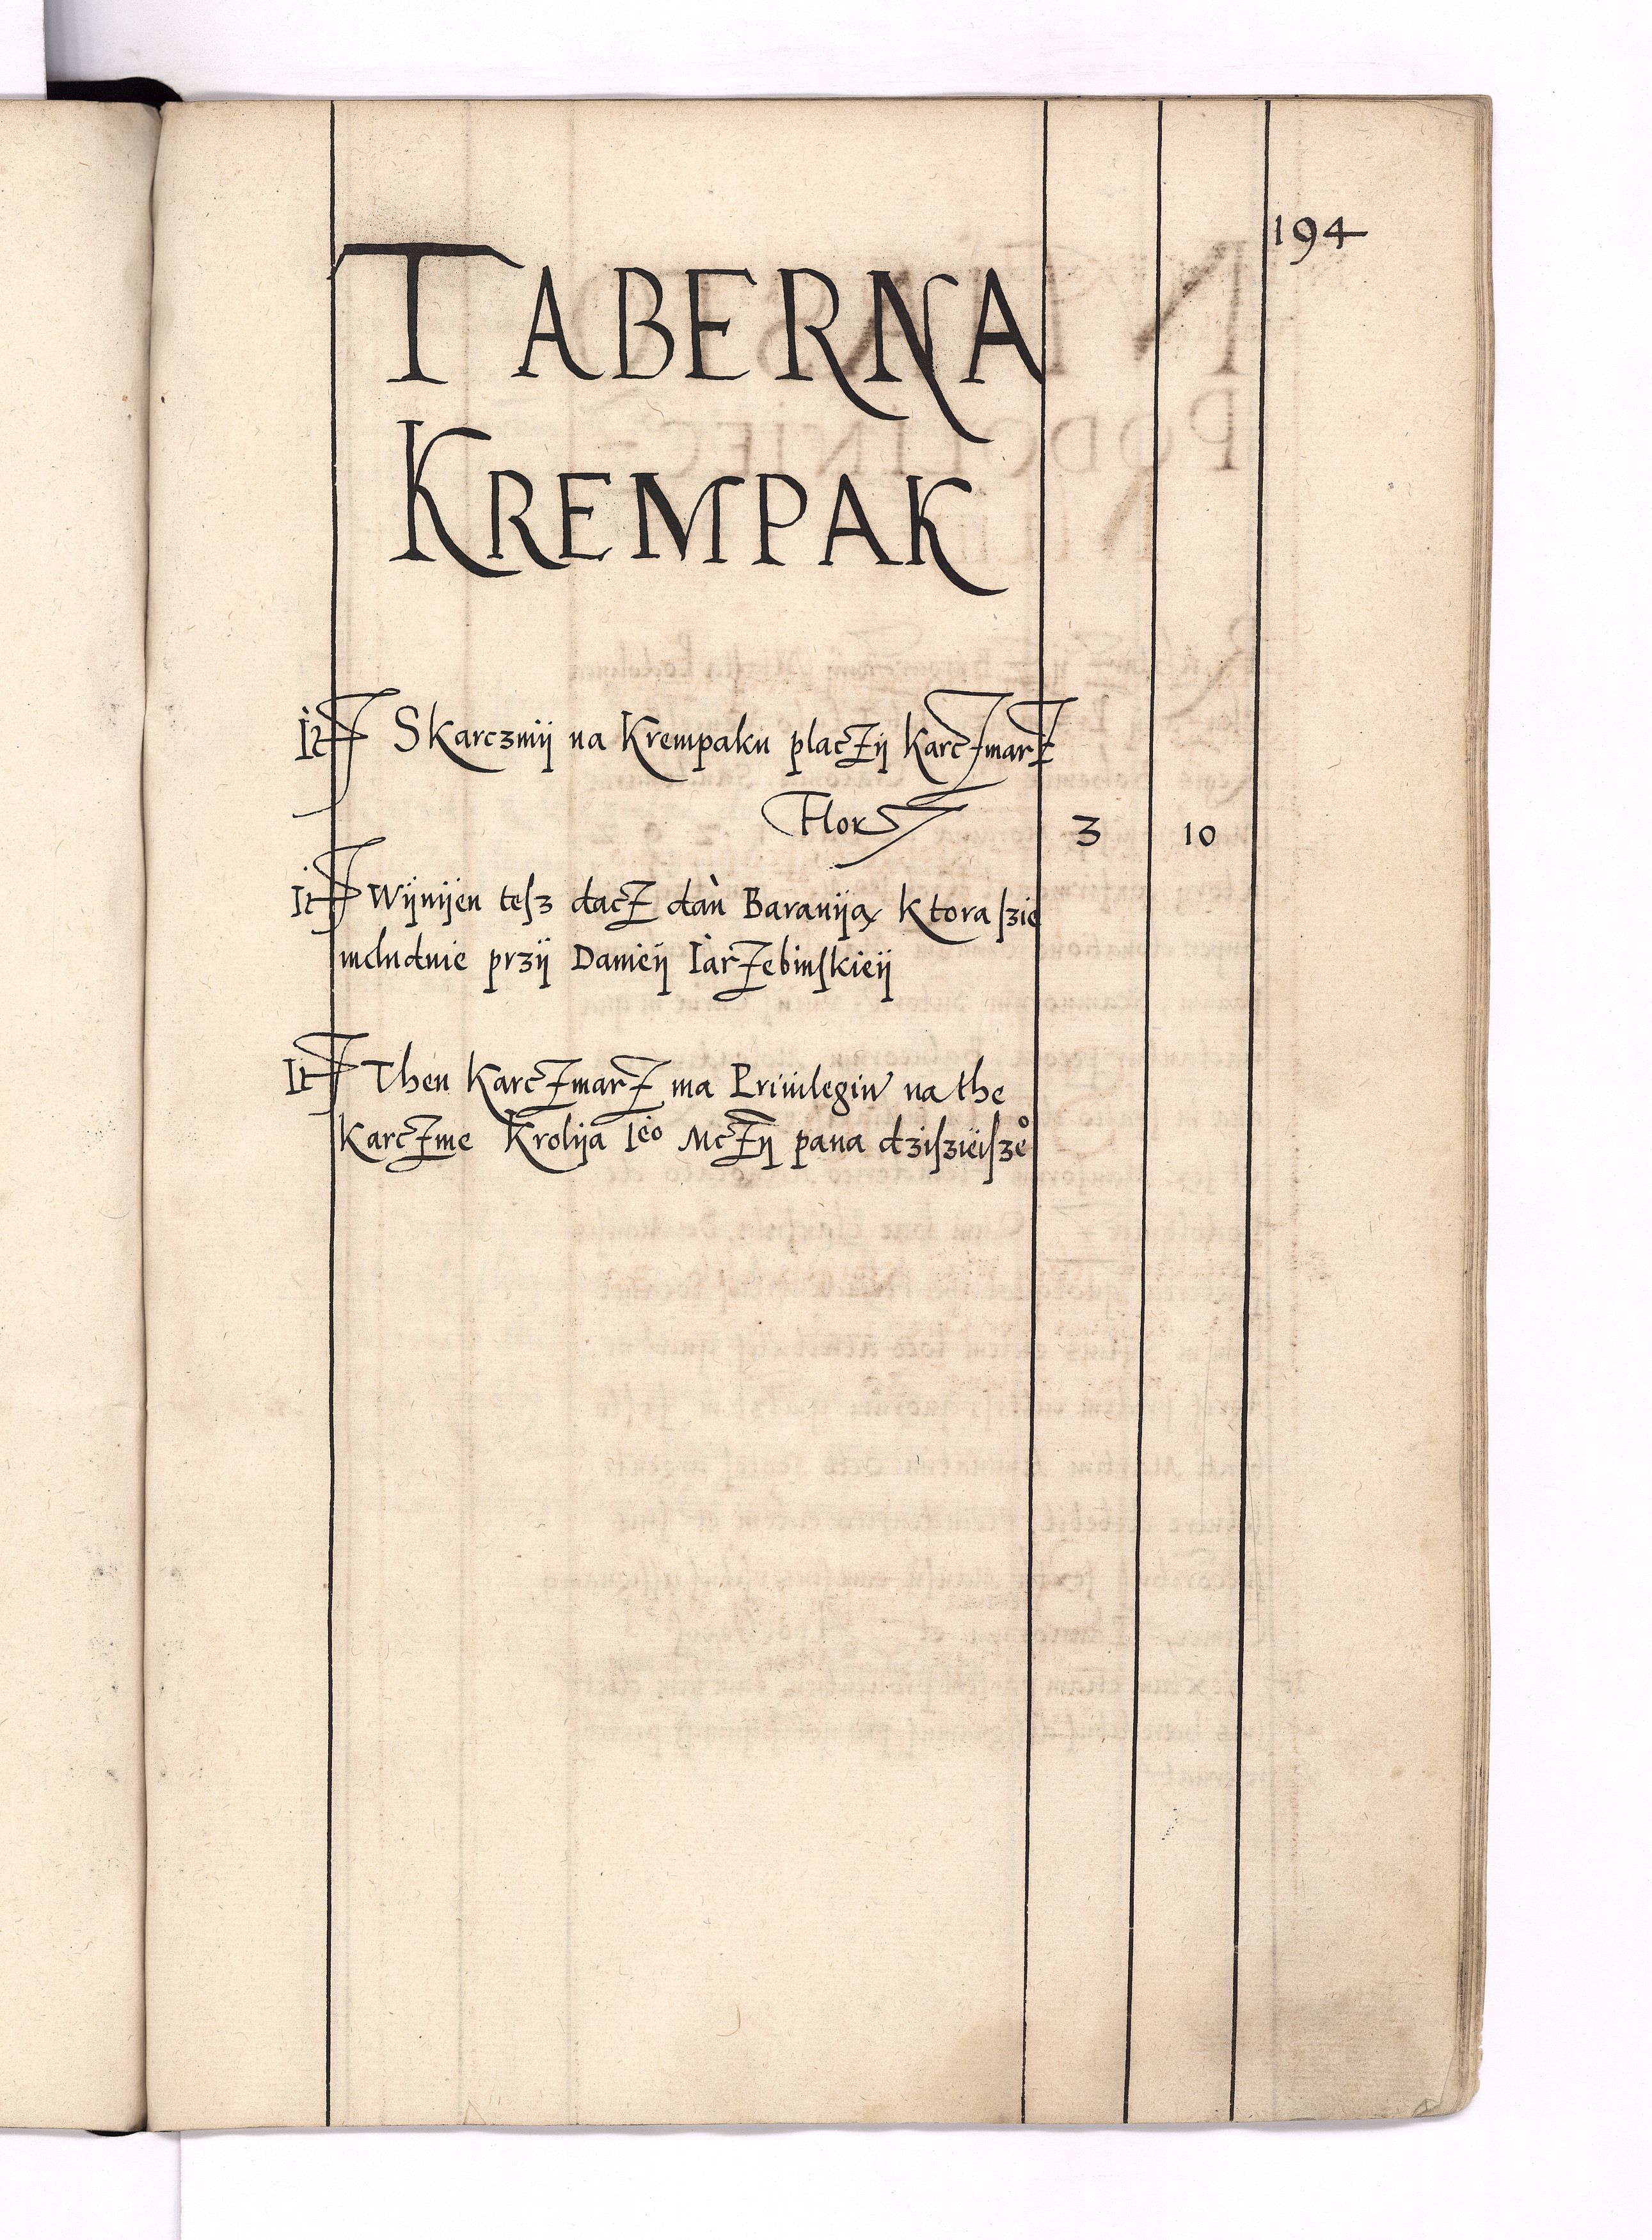 194
TABERNA
KREMPAK
It Skarczmÿ na Krempaku placzÿ karczmarz
Flor 3 10
It Wÿnÿen tesz dacz dań Baranÿą ktora szie
mduduie przÿ Danieÿ Iarzebinskieÿ
It Then Karczmarz ma Priuilegiu na the
karczme Krolÿa Ieo Mczÿ pana dzisziéisze°